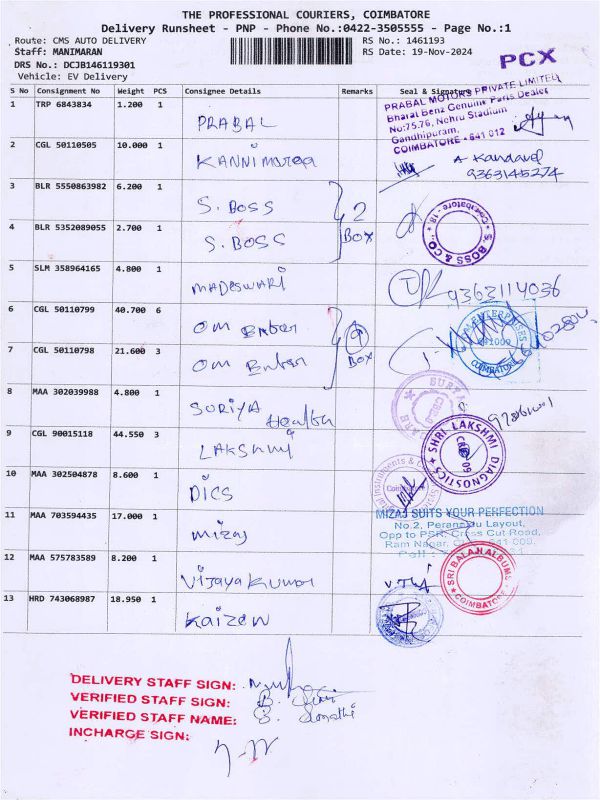 THE PROFESSIONAL COURIERS, COIMBATORE
Delivery Runsheet - PNP - Phone No.:0422-3505555 - Page No.:1
Route: CMS AUTO DELIVERY RS No.: 1461193
Staff: MANIMARAN RS Date: 19-Nov-2024
DRS No.: DCJB146119301
Vehicle: EV Delivery
PCX
S No Consignment No Weight PCS Consignee Details Remarks Seal & Signature
PRABAL MOTORS PRIVATE LIMITED
Bharat Benz Genuine Parts Dealer
No:75,76, Nehru Stadium
Gandhipuram,
COIMBATORE - 641 012
1 TRP 6843834 1.200 1 PRABAL
2 CGL 50110505 10.000 1
A Kandavel
9363145274
3 BLR 5550863982 6.200 1 S. BOSS
2 BOX
4 BLR 5352089055 2.700 1 S. BOSS
S. BOSS & CO
Coimbatore - 18
5 SLM 358964165 4.800 1 MADESWARI
9363114036
6 CGL 50110799 40.700 6 Om Enter
9 BOX
7 CGL 50110798 21.600 3 Om Enter
ENTERPRISES
COIMBATORE
8 MAA 302039988 4.800 1 SURIYA Health
9 CGL 90015118 44.550 3 LAKSHMI
SHRI LAKSHMI DIAGNOSTICS
10 MAA 302504878 8.600 1 DICS
11 MAA 703594435 17.000 1 Mizaj
MIZAJ SUITS YOUR PERFECTION
No.2, Layout,
Opp to PSR, Cross Cut Road,
Ram Nagar,
12 MAA 575783589 8.200 1 Vijaya Kumar
SRI BALAJI ALBUMS
COIMBATORE
13 HRD 743068987 18.950 1 Kaizen
DELIVERY STAFF SIGN:
VERIFIED STAFF SIGN:
VERIFIED STAFF NAME:
INCHARGE SIGN: